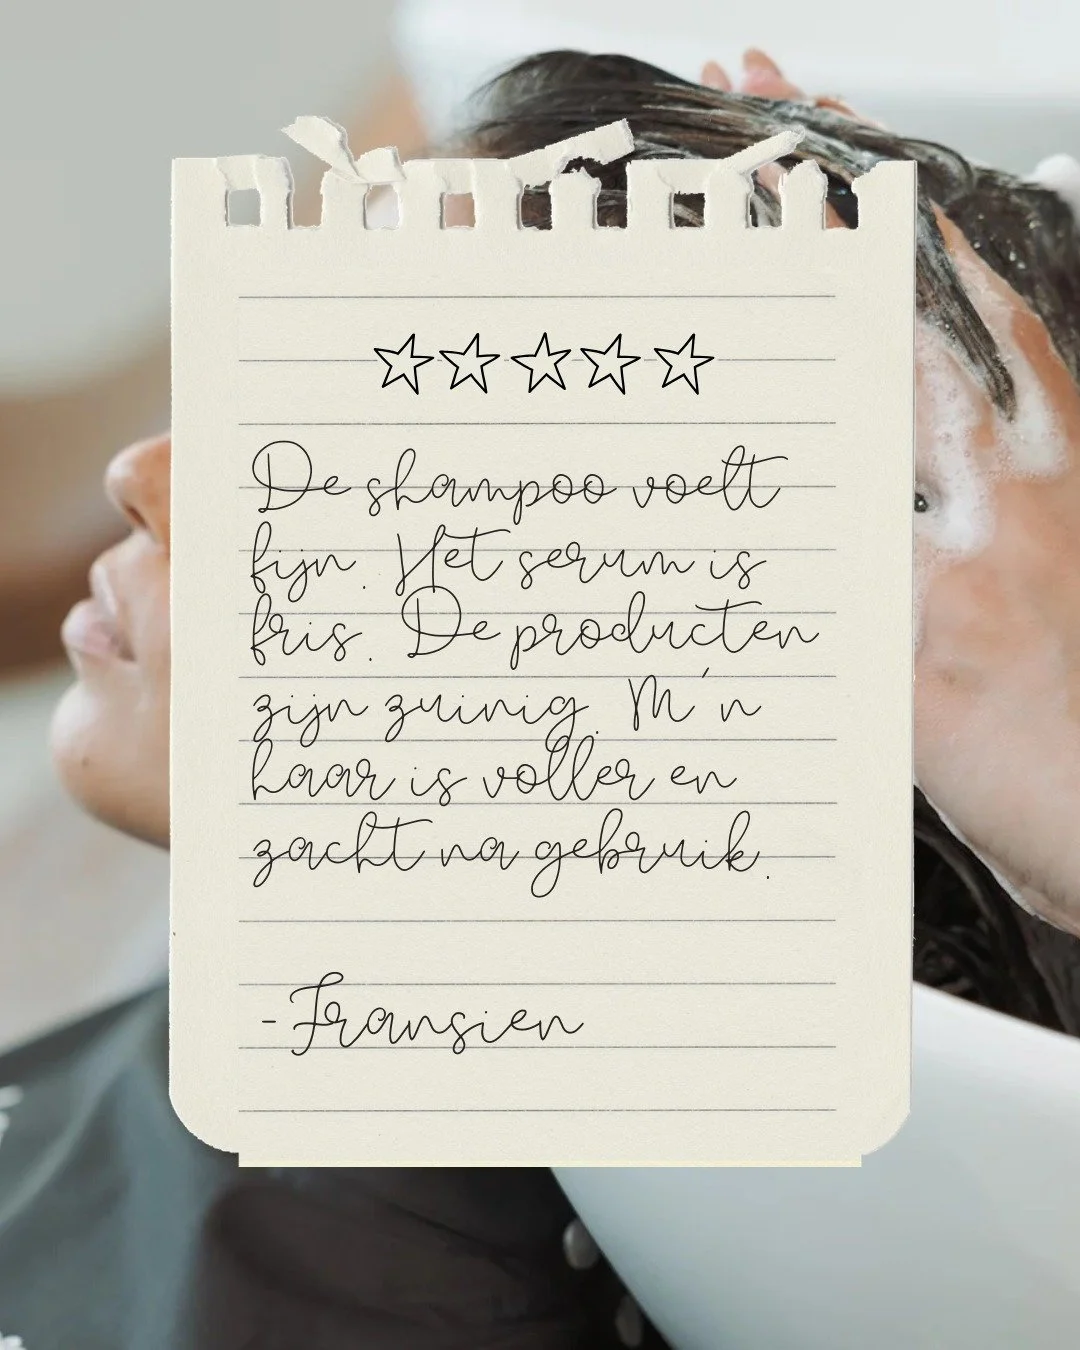 De shampoo voelt
fijn. Het serum is
fris. De producten
zijn zuinig. M'n
haar is voller en
zacht na gebruik.
-Fransien